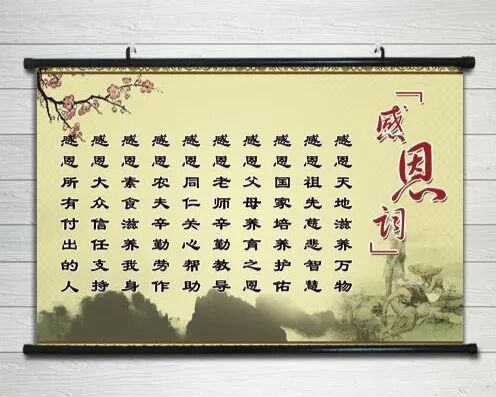 「感恩词」
感恩天地滋养万物
感恩祖先慈悲智慧
感恩国家培养护佑
感恩父母养育之恩
感恩老师辛勤教导
感恩同仁关心帮助
感恩农夫辛勤劳作
感恩素食滋养我身
感恩大众信任支持
感恩所有付出的人